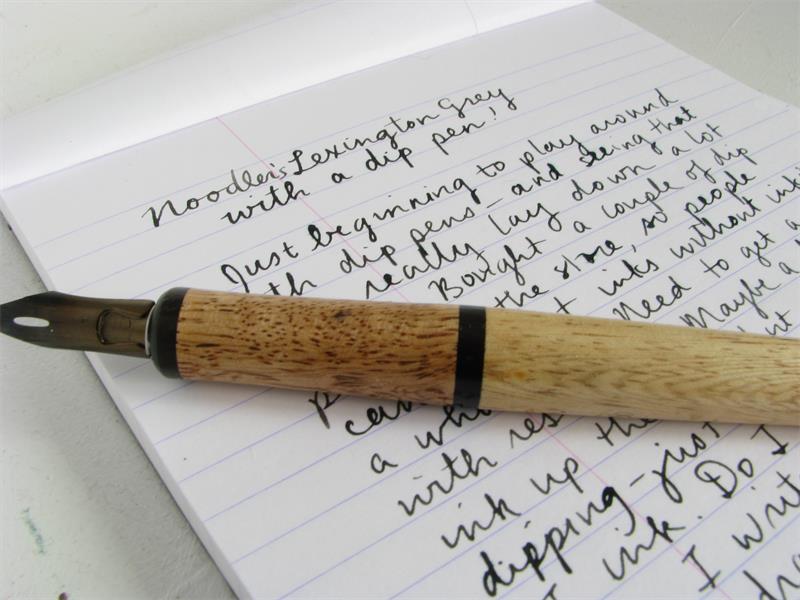 Noodler's Lexington Grey
with a dip pen!
Just beginning to play around
dip pens - and seeing that
really lay down a lot
Bought a couple of dip
the store, so people
inks without
Need to get a
Maybe a
a
with
ink up the
dipping - just
ink. Do I
I